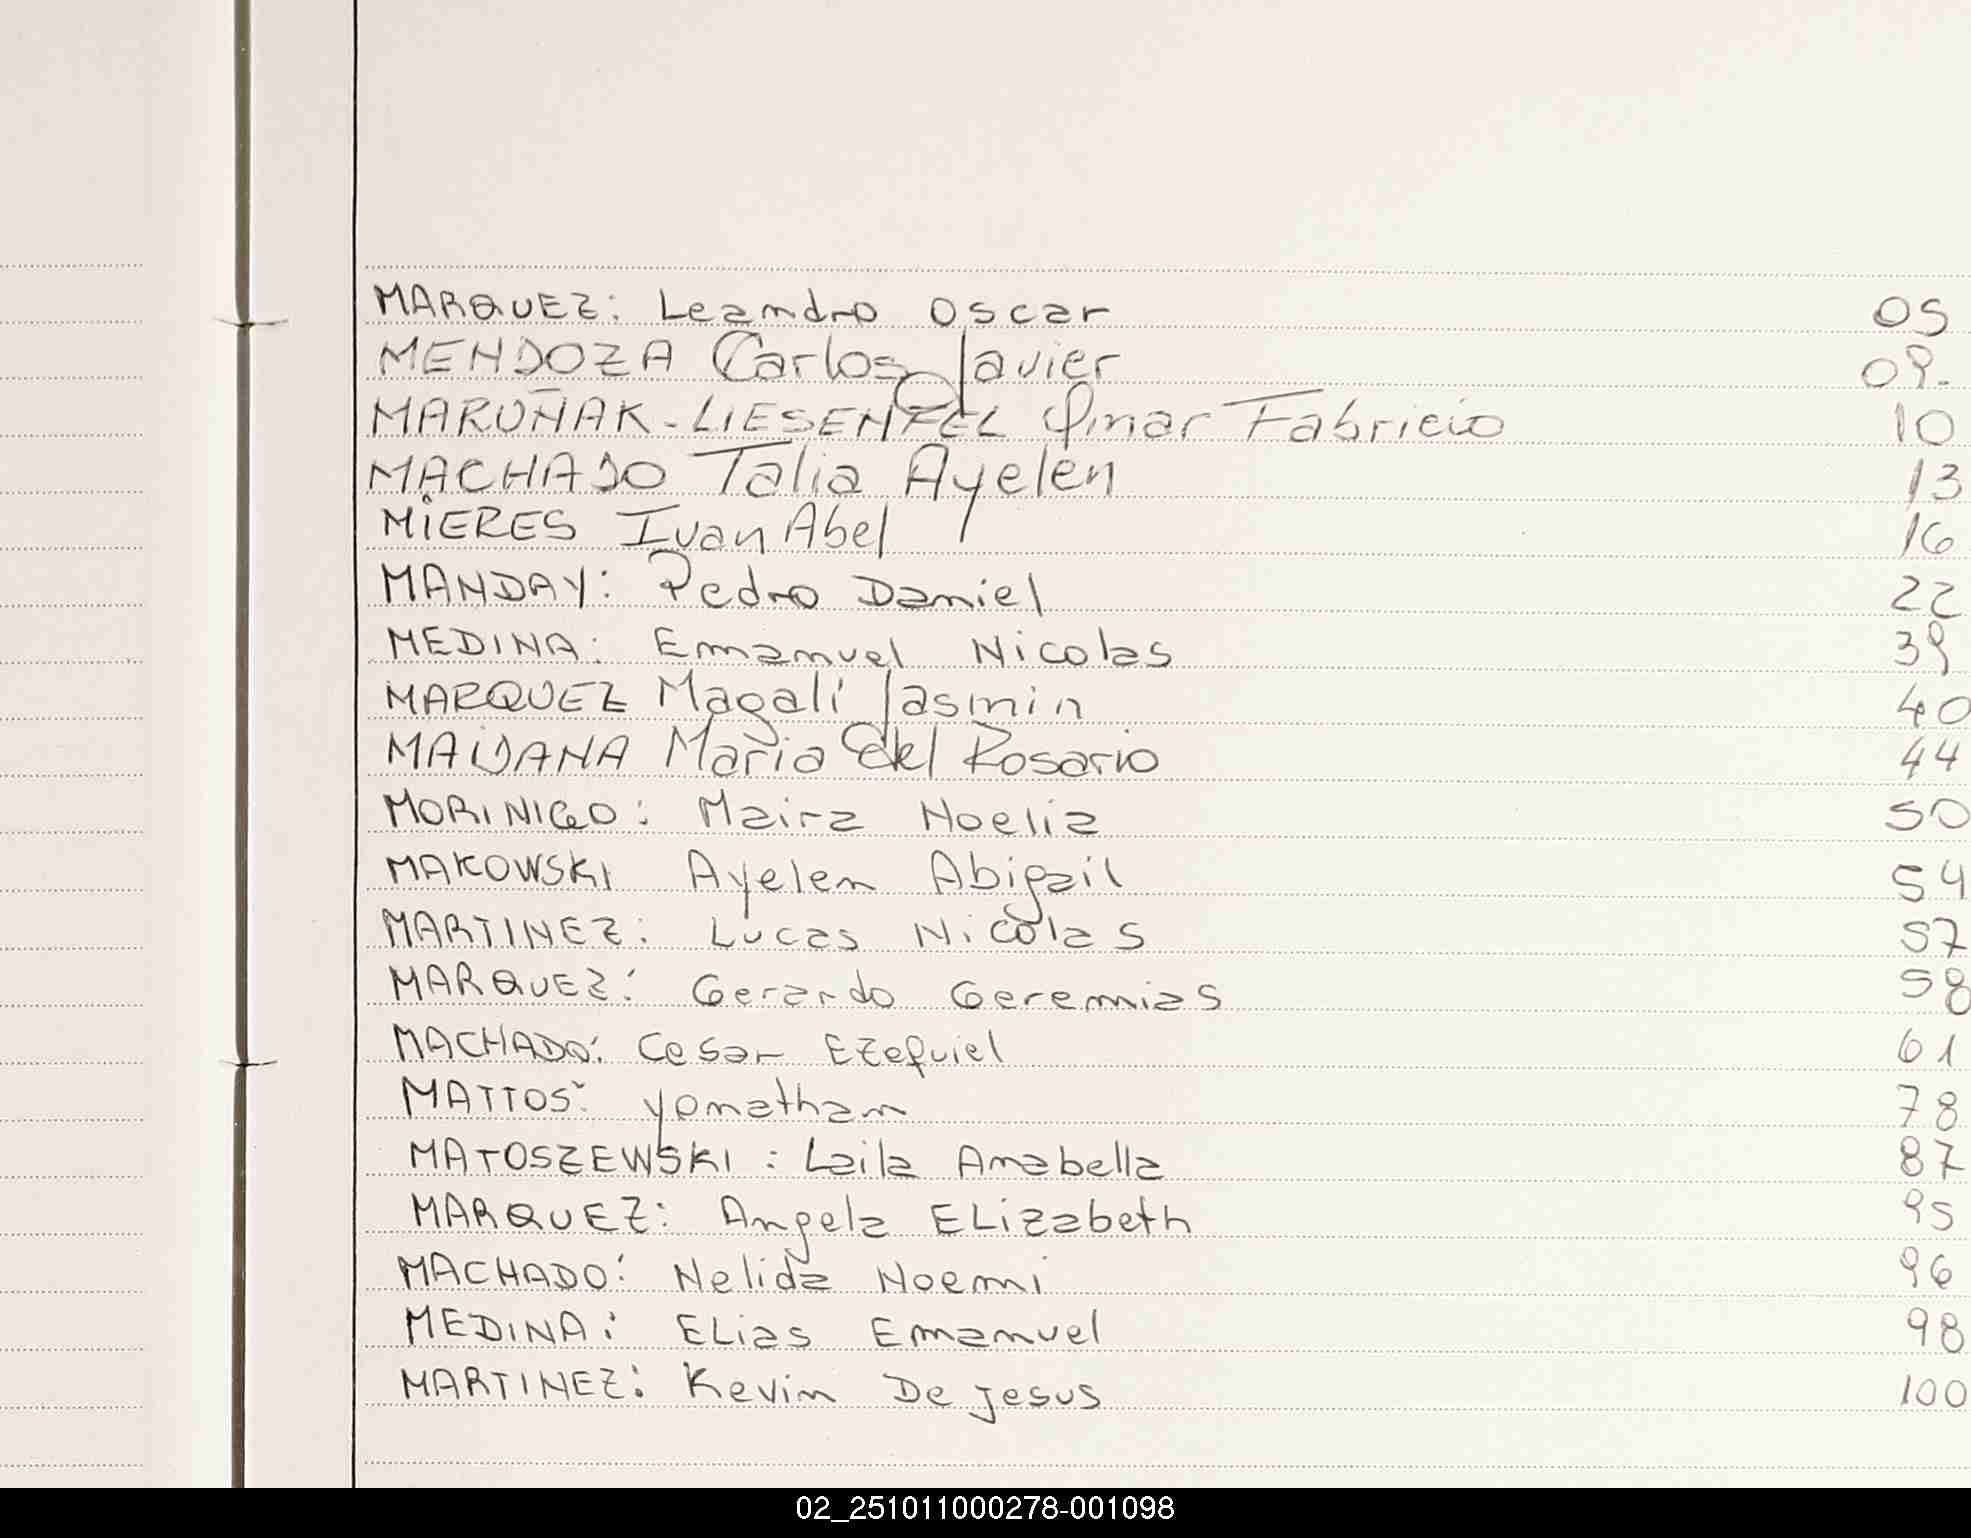 MARQUEZ: Leandro Oscar 05
MENDOZA Carlos Javier 09.
MARUÑAK-LIESENFEL Omar Fabricio 10
MACHADO Talia Ayelén 13
MIERES Ivan Abel 16
MANDAY: Pedro Daniel 22
MEDINA: Emanuel Nicolas 39
MARQUEZ Magali Jasmin 40
MAIDANA Maria del Rosario 44
MORINIGO: Maira Noelia 50
MAKOWSKI Ayelen Abigail 54
MARTINEZ: Lucas Nicolas 57
MARQUEZ: Gerardo Geremias 58
MACHADO: Cesar Ezequiel 61
MATTOS: Yonathan 78
MATOSZEWSKI: Laila Anabella 87
MARQUEZ: Angela ELizabeth 95
MACHADO: Nelida Noemi 96
MEDINA: ELias Emanuel 98
MARTINEZ: Kevin De Jesus 100
02_251011000278-001098